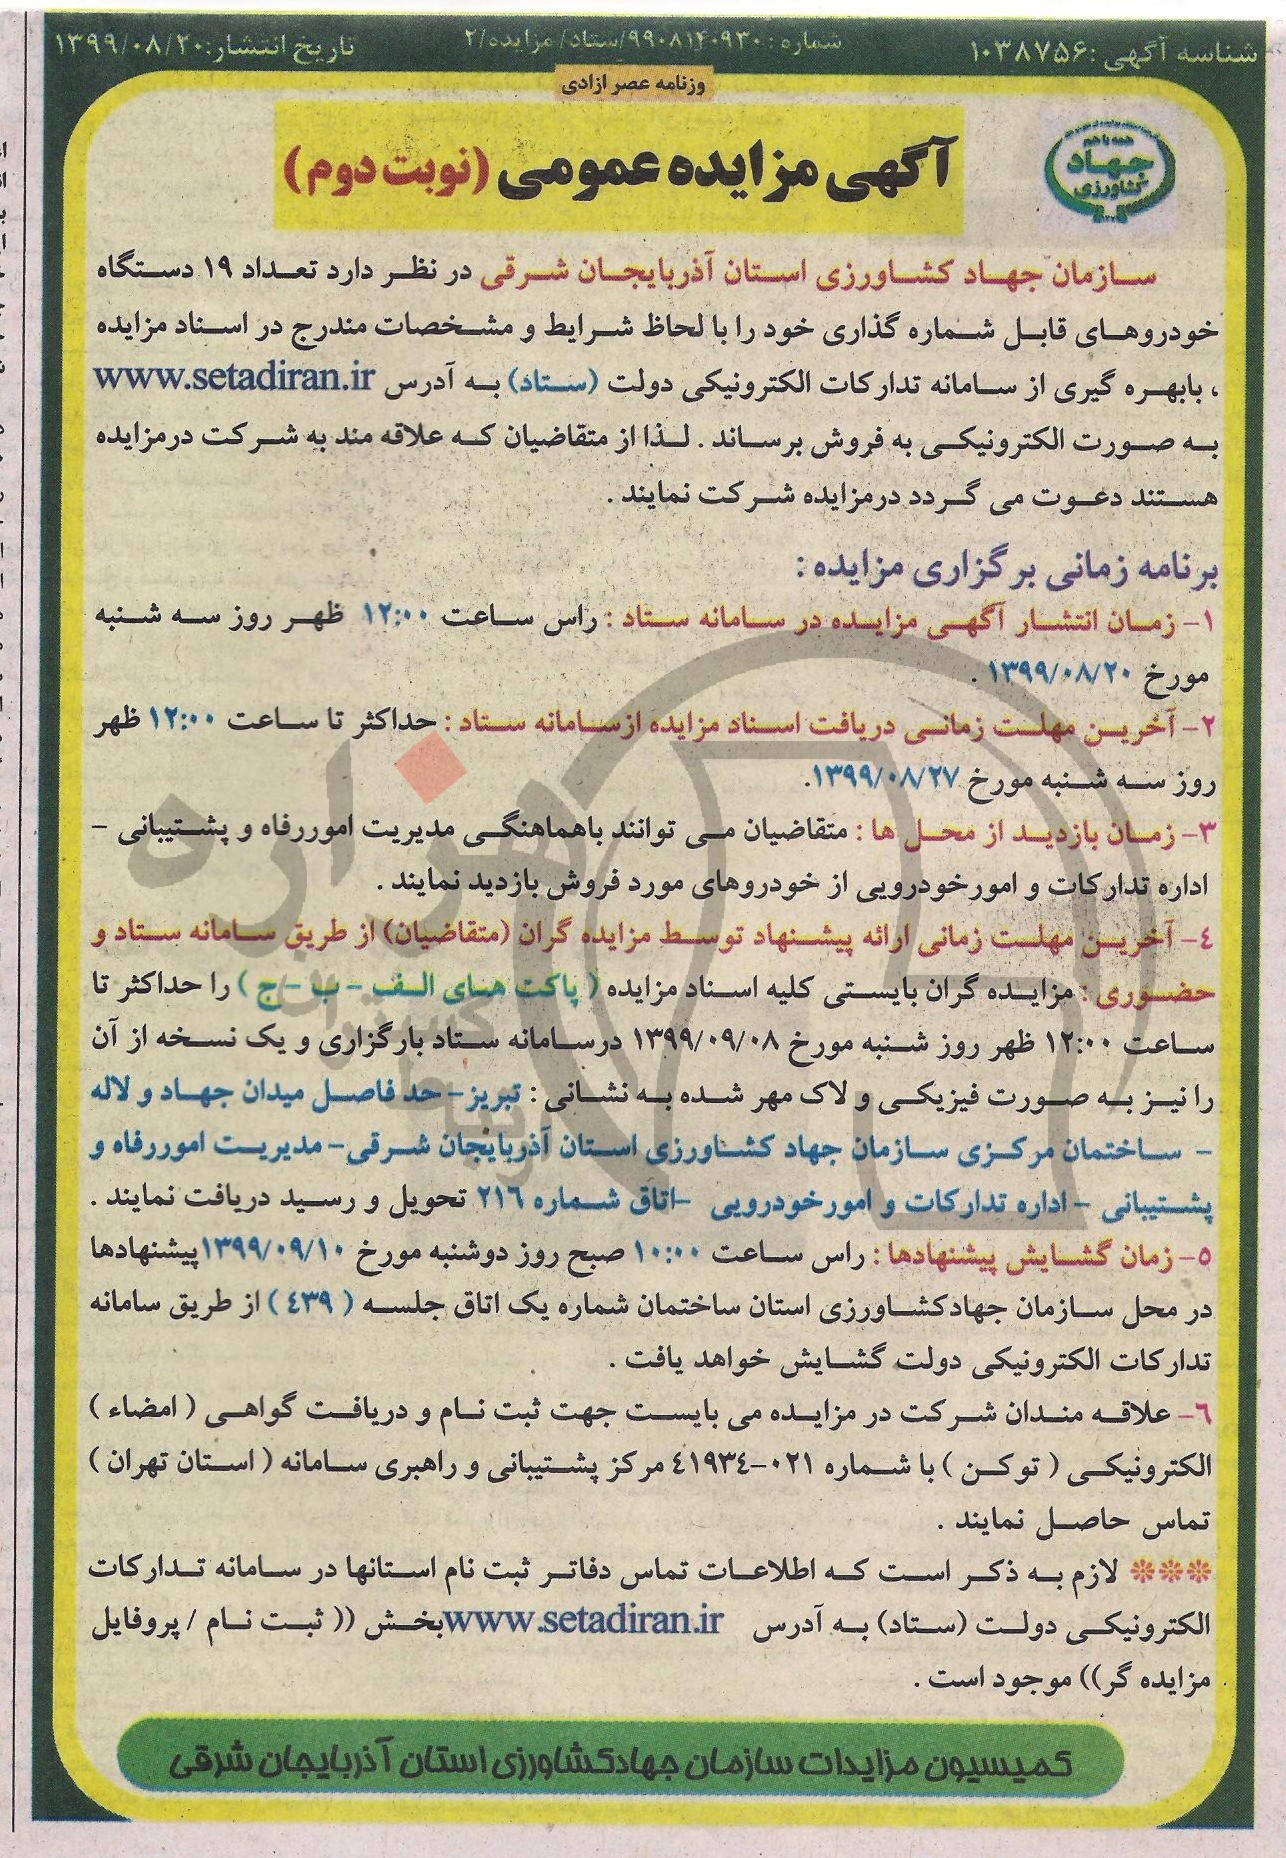 شناسه آگهی :۱۰۳۸۷۵۶
شماره : ۹۹۰۸۱۴۰۹۳۰/ستاد/ مزایده/۲
تاریخ انتشار:۱۳۹۹/۰۸/۲۰
وزنامه عصر ازادی
همه با هم
جهاد
کشاورزی
آگهی مزایده عمومی (نوبت دوم)
سازمان جهاد کشاورزی استان آذربایجان شرقی در نظر دارد تعداد ۱۹ دستگاه
خودروهای قابل شماره گذاری خود را با لحاظ شرایط و مشخصات مندرج در اسناد مزایده
، بابهره گیری از سامانه تدارکات الکترونیکی دولت (ستاد) به آدرس www.setadiran.ir
به صورت الکترونیکی به فروش برساند . لذا از متقاضیان که علاقه مند به شرکت درمزایده
هستند دعوت می گردد درمزایده شرکت نمایند .
برنامه زمانی برگزاری مزایده :
۱- زمان انتشار آگهی مزایده در سامانه ستاد : راس ساعت ۱۲:۰۰ ظهر روز سه شنبه
مورخ ۱۳۹۹/۰۸/۲۰ .
۲- آخرین مهلت زمانی دریافت اسناد مزایده ازسامانه ستاد : حداکثر تا ساعت ۱۲:۰۰ ظهر
روز سه شنبه مورخ ۱۳۹۹/۰۸/۲۷.
۳- زمان بازدید از محل ها : متقاضیان می توانند باهماهنگی مدیریت اموررفاه و پشتیبانی -
اداره تدارکات و امورخودرویی از خودروهای مورد فروش بازدید نمایند .
۴- آخرین مهلت زمانی ارائه پیشنهاد توسط مزایده گران (متقاضیان) از طریق سامانه ستاد و
حضوری : مزایده گران بایستی کلیه اسناد مزایده ( پاکت های الف - ب - ج ) را حداکثر تا
ساعت ۱۲:۰۰ ظهر روز شنبه مورخ ۱۳۹۹/۰۹/۰۸ درسامانه ستاد بارگزاری و یک نسخه از آن
را نیز به صورت فیزیکی و لاک مهر شده به نشانی : تبریز- حد فاصل میدان جهاد و لاله
- ساختمان مرکزی سازمان جهاد کشاورزی استان آذربایجان شرقی- مدیریت اموررفاه و
پشتیبانی - اداره تدارکات و امورخودرویی -اتاق شماره ۲۱۶ تحویل و رسید دریافت نمایند .
۵- زمان گشایش پیشنهادها : راس ساعت ۱۰:۰۰ صبح روز دوشنبه مورخ ۱۳۹۹/۰۹/۱۰پیشنهادها
در محل سازمان جهادکشاورزی استان ساختمان شماره یک اتاق جلسه ( ۴۳۹ ) از طریق سامانه
تدارکات الکترونیکی دولت گشایش خواهد یافت .
۶- علاقه مندان شرکت در مزایده می بایست جهت ثبت نام و دریافت گواهی ( امضاء )
الکترونیکی ( توکن ) با شماره ۰۲۱-۴۱۹۳۴ مرکز پشتیبانی و راهبری سامانه ( استان تهران )
تماس حاصل نمایند .
*** لازم به ذکر است که اطلاعات تماس دفاتر ثبت نام استانها در سامانه تدارکات
الکترونیکی دولت (ستاد) به آدرس www.setadiran.irبخش (( ثبت نام / پروفایل
مزایده گر)) موجود است .
کمیسیون مزایدات سازمان جهادکشاورزی استان آذربایجان شرقی